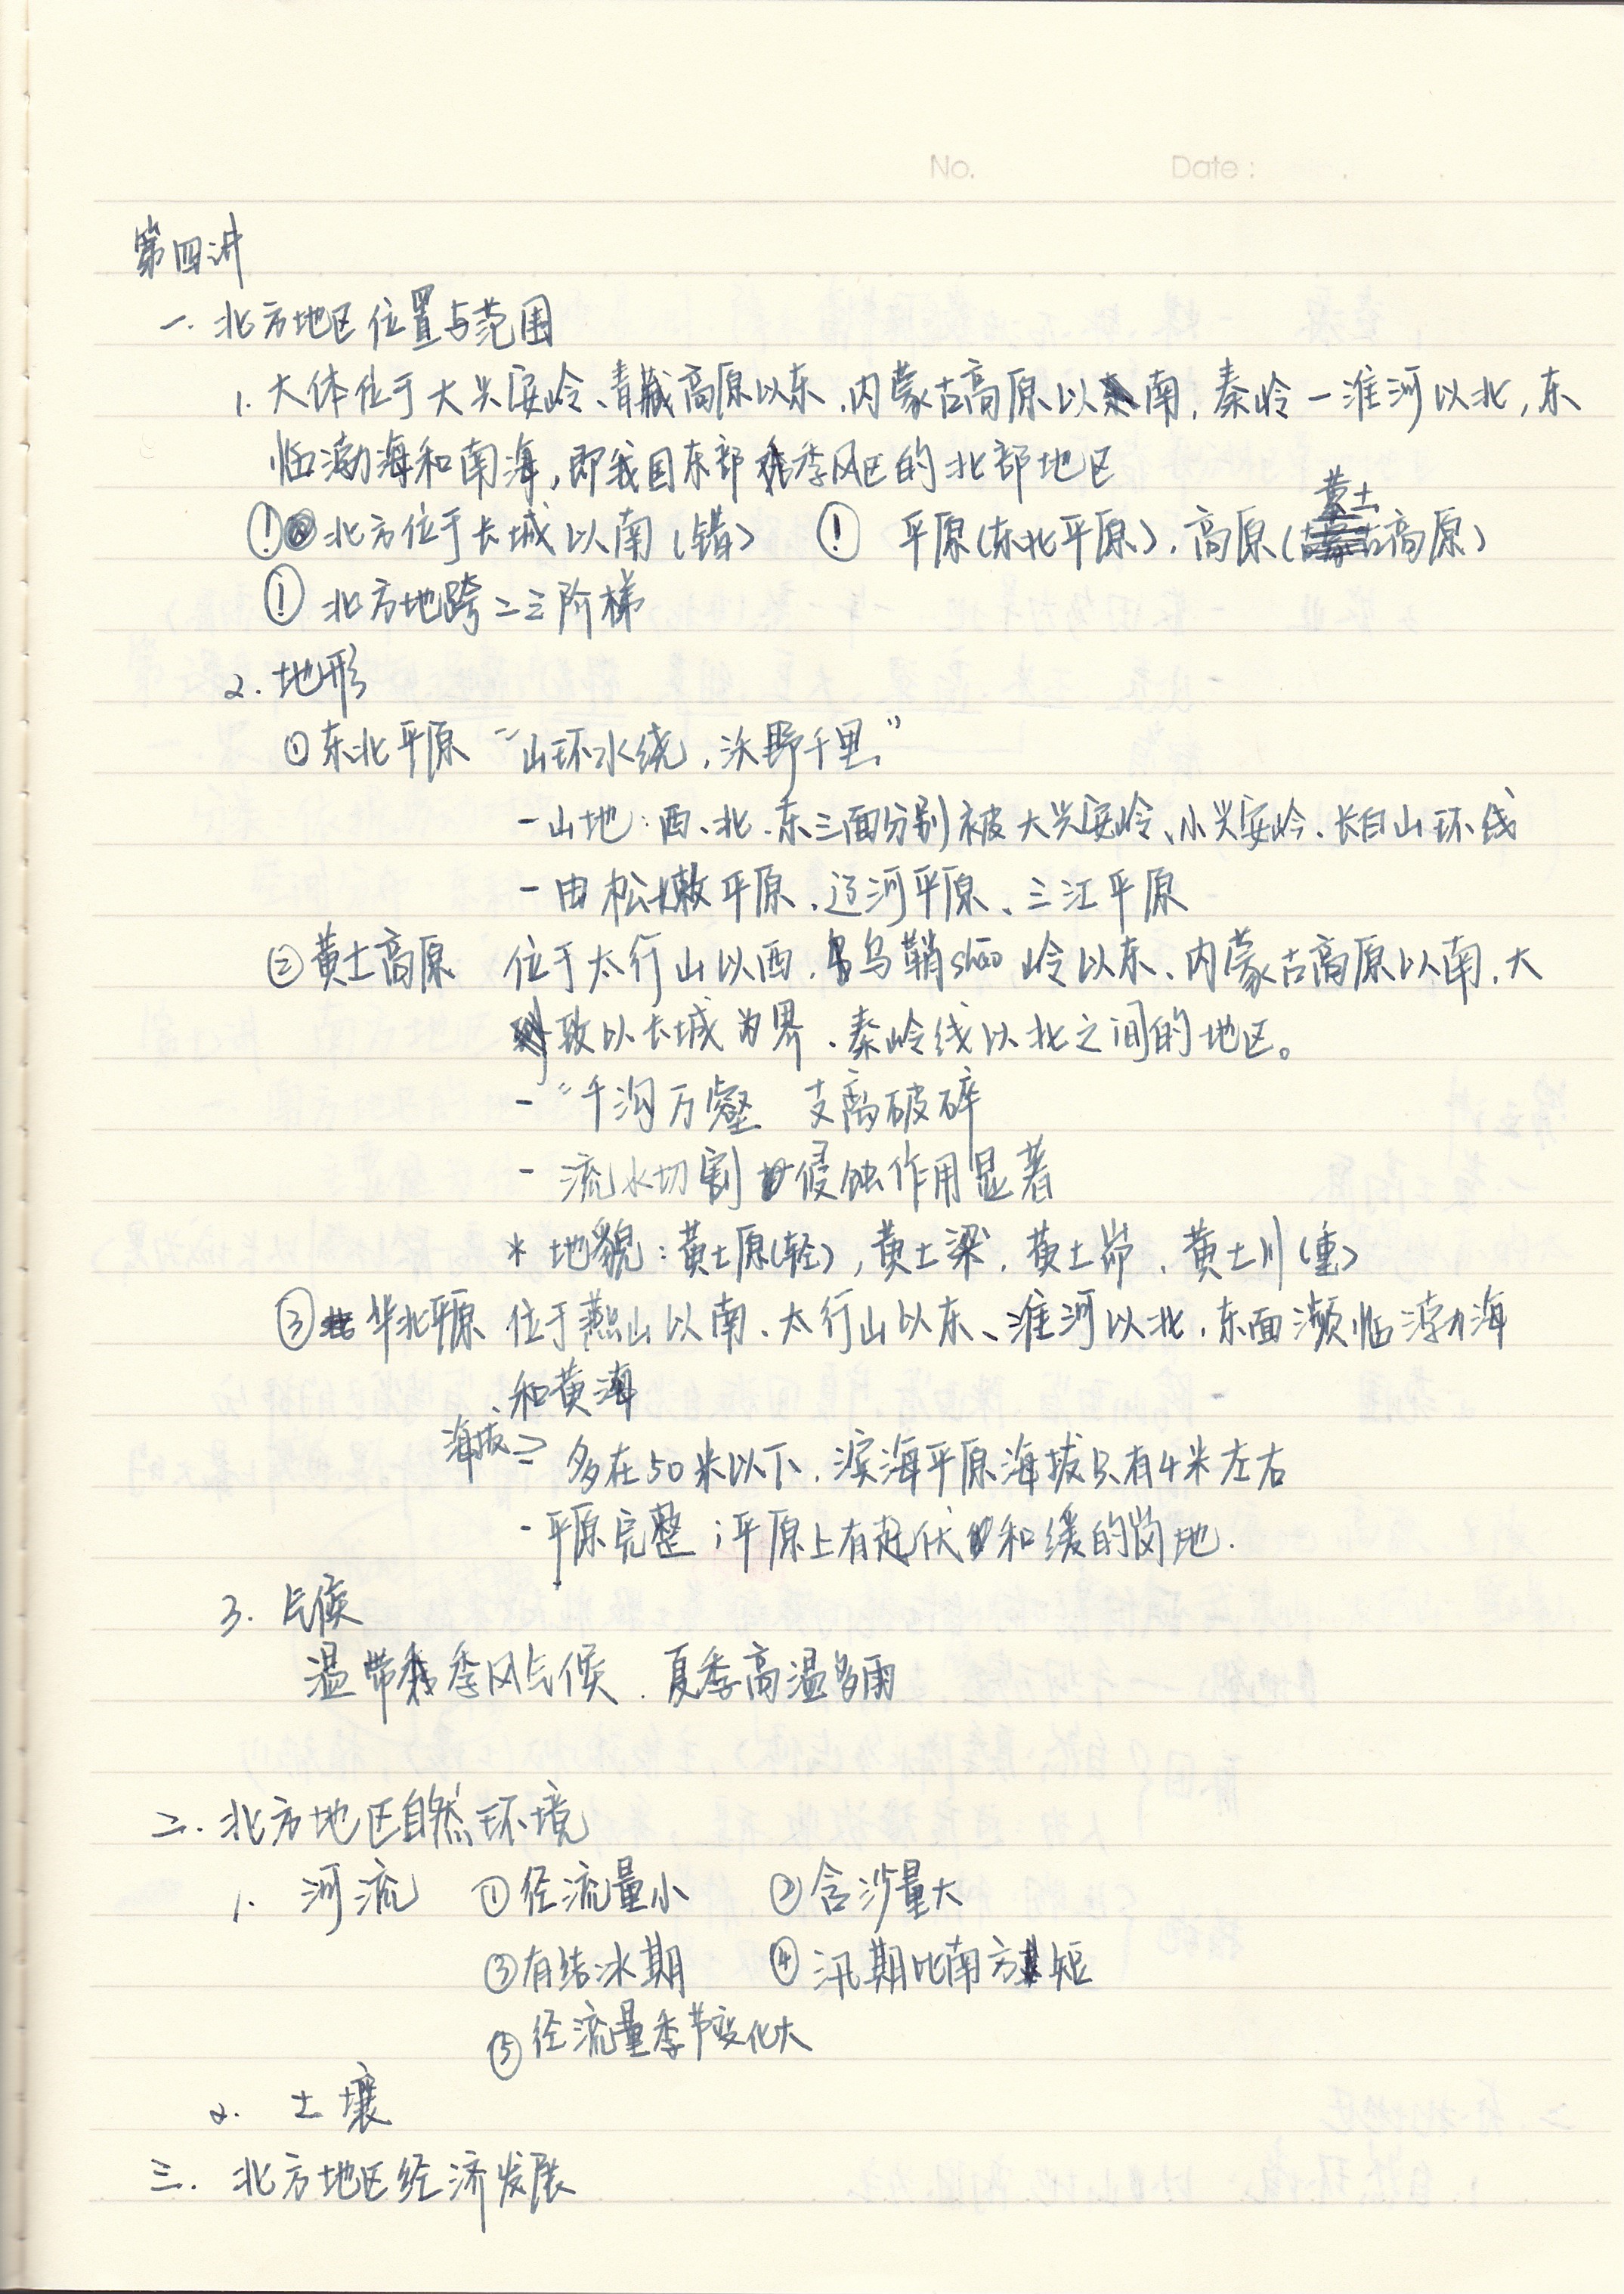 No. Date:
第四讲
一. 北方地区位置与范围
1. 大体位于大兴安岭、青藏高原以东、内蒙古高原以南, 秦岭-淮河以北, 东
临渤海和南海, 即我国东部季风区的北部地区
① 北方位于长城以南(错) ① 平原(东北平原)、高原(黄土高原)
① 北方地跨二三阶梯
2. 地形
① 东北平原 “山环水绕, 沃野千里”
- 山地: 西、北、东三面分别被大兴安岭、小兴安岭、长白山环线
- 由松嫩平原、辽河平原、三江平原
② 黄土高原 位于太行山以西、乌鞘shao岭以东、内蒙古高原以南、大
致以长城为界、秦岭线以北之间的地区。
- “千沟万壑 支离破碎
- 流水切割侵蚀作用显著
* 地貌: 黄土原(轻), 黄土梁、黄土峁、黄土川(重)
③ 华北平原 位于燕山以南、太行山以东、淮河以北、东面濒临渤海
和黄海
海拔 多在50米以下, 滨海平原海拔只有4米左右
- 平原完整; 平原上有起伏和缓的岗地.
3. 气候
温带季风气候. 夏季高温多雨
二. 北方地区自然环境
1. 河流 ①径流量小 ②含沙量大
③有结冰期 ④汛期比南方短
⑤径流量季节变化大
2. 土壤
三. 北方地区经济发展